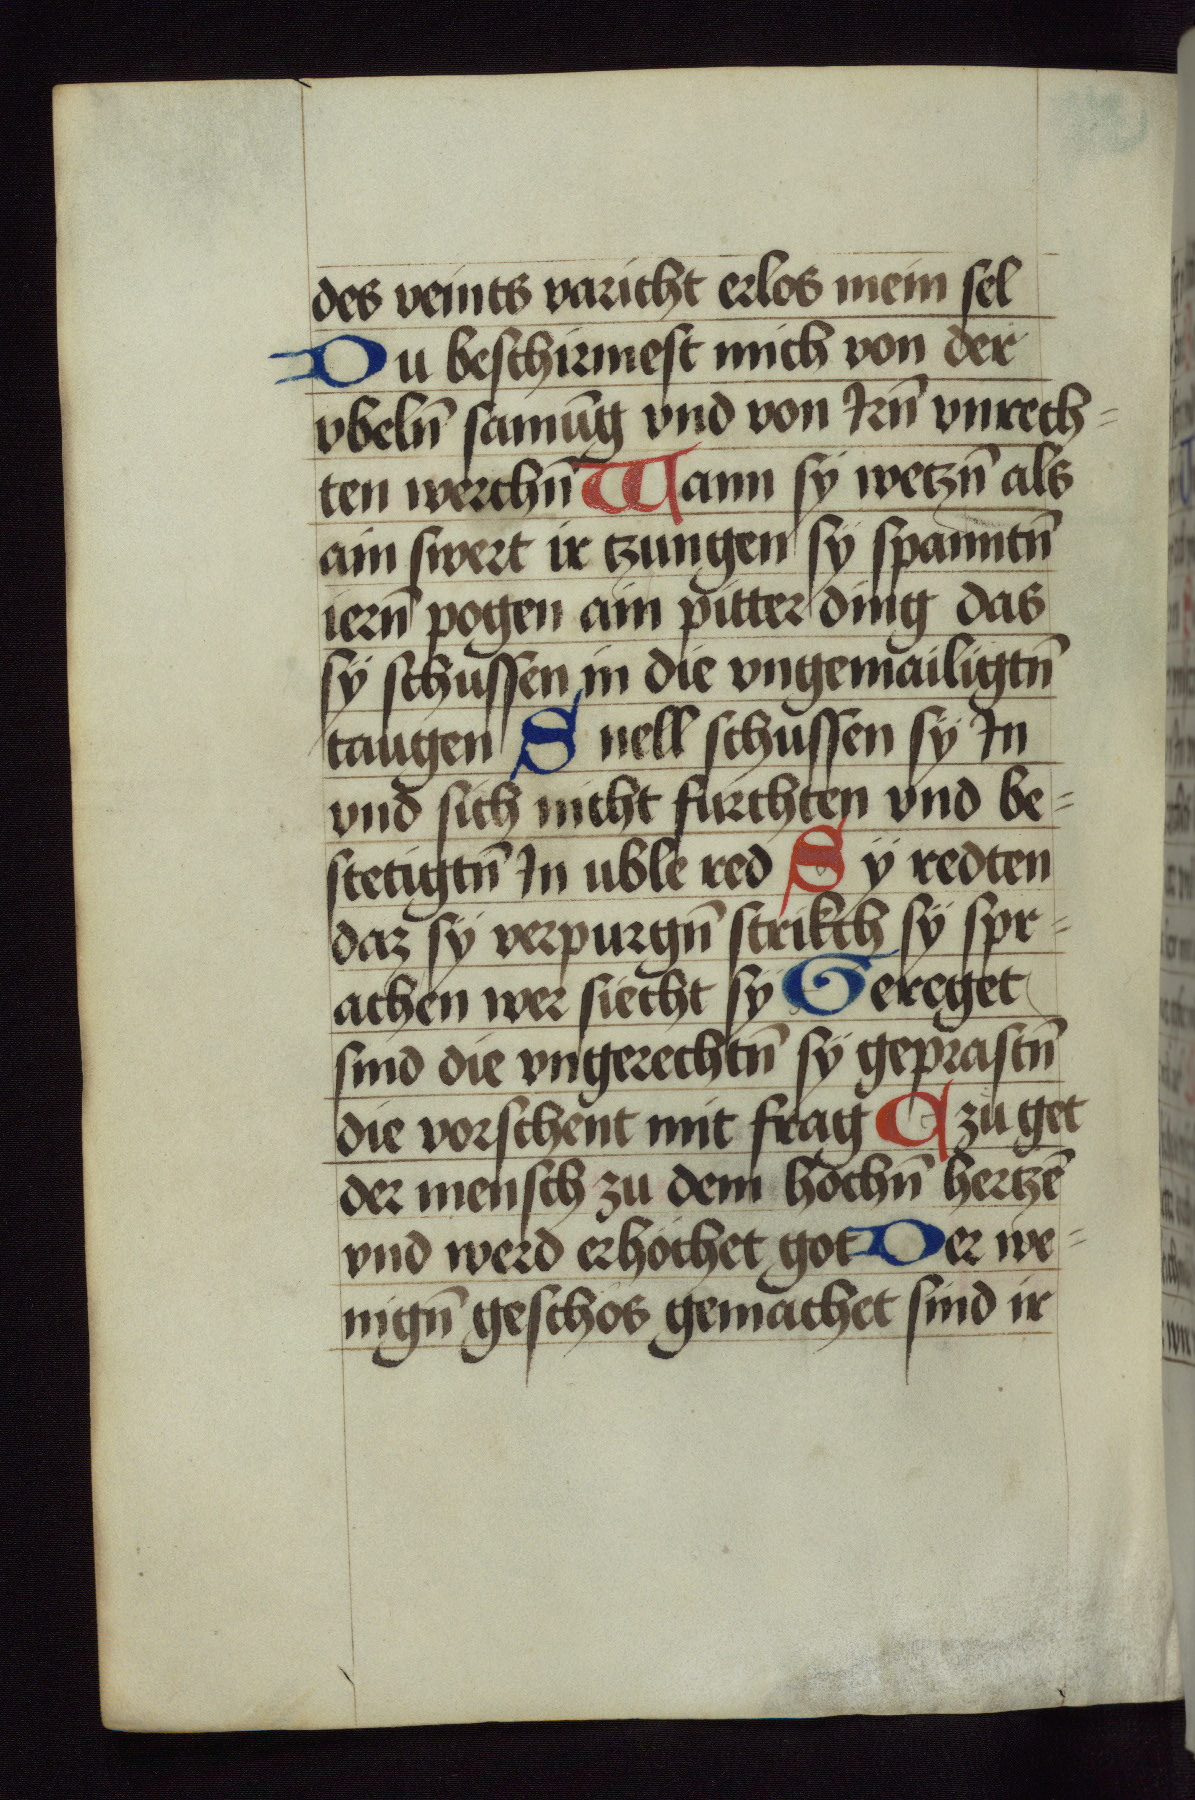 des veints varicht erlos mein sel
Du beschirmest mich von der
vbeln̄ samūg vnd von Irn̄ vnrech=
ten werchn̄ Wann sÿ wetzn̄ als
ain swert ir tzungen sÿ spanntn̄
iern̄ pogen ain pitter ding das
sÿ schussen in die vngemailigtn̄
taugen Snell schussen sÿ In
vnd sich nicht furchten vnd be=
stetigtn̄ In uble red Sÿ redten
daz sÿ verpurgn̄ strikch sÿ spr=
achen wer siecht sÿ Gereget
sind die vngerechtn̄ sÿ geprastn̄
die vorschent mit frag Czu get
der mensch zu dem hochn̄ hertzē
vnd werd erhöchet got Der we=
nign̄ geschos gemachet sind ir